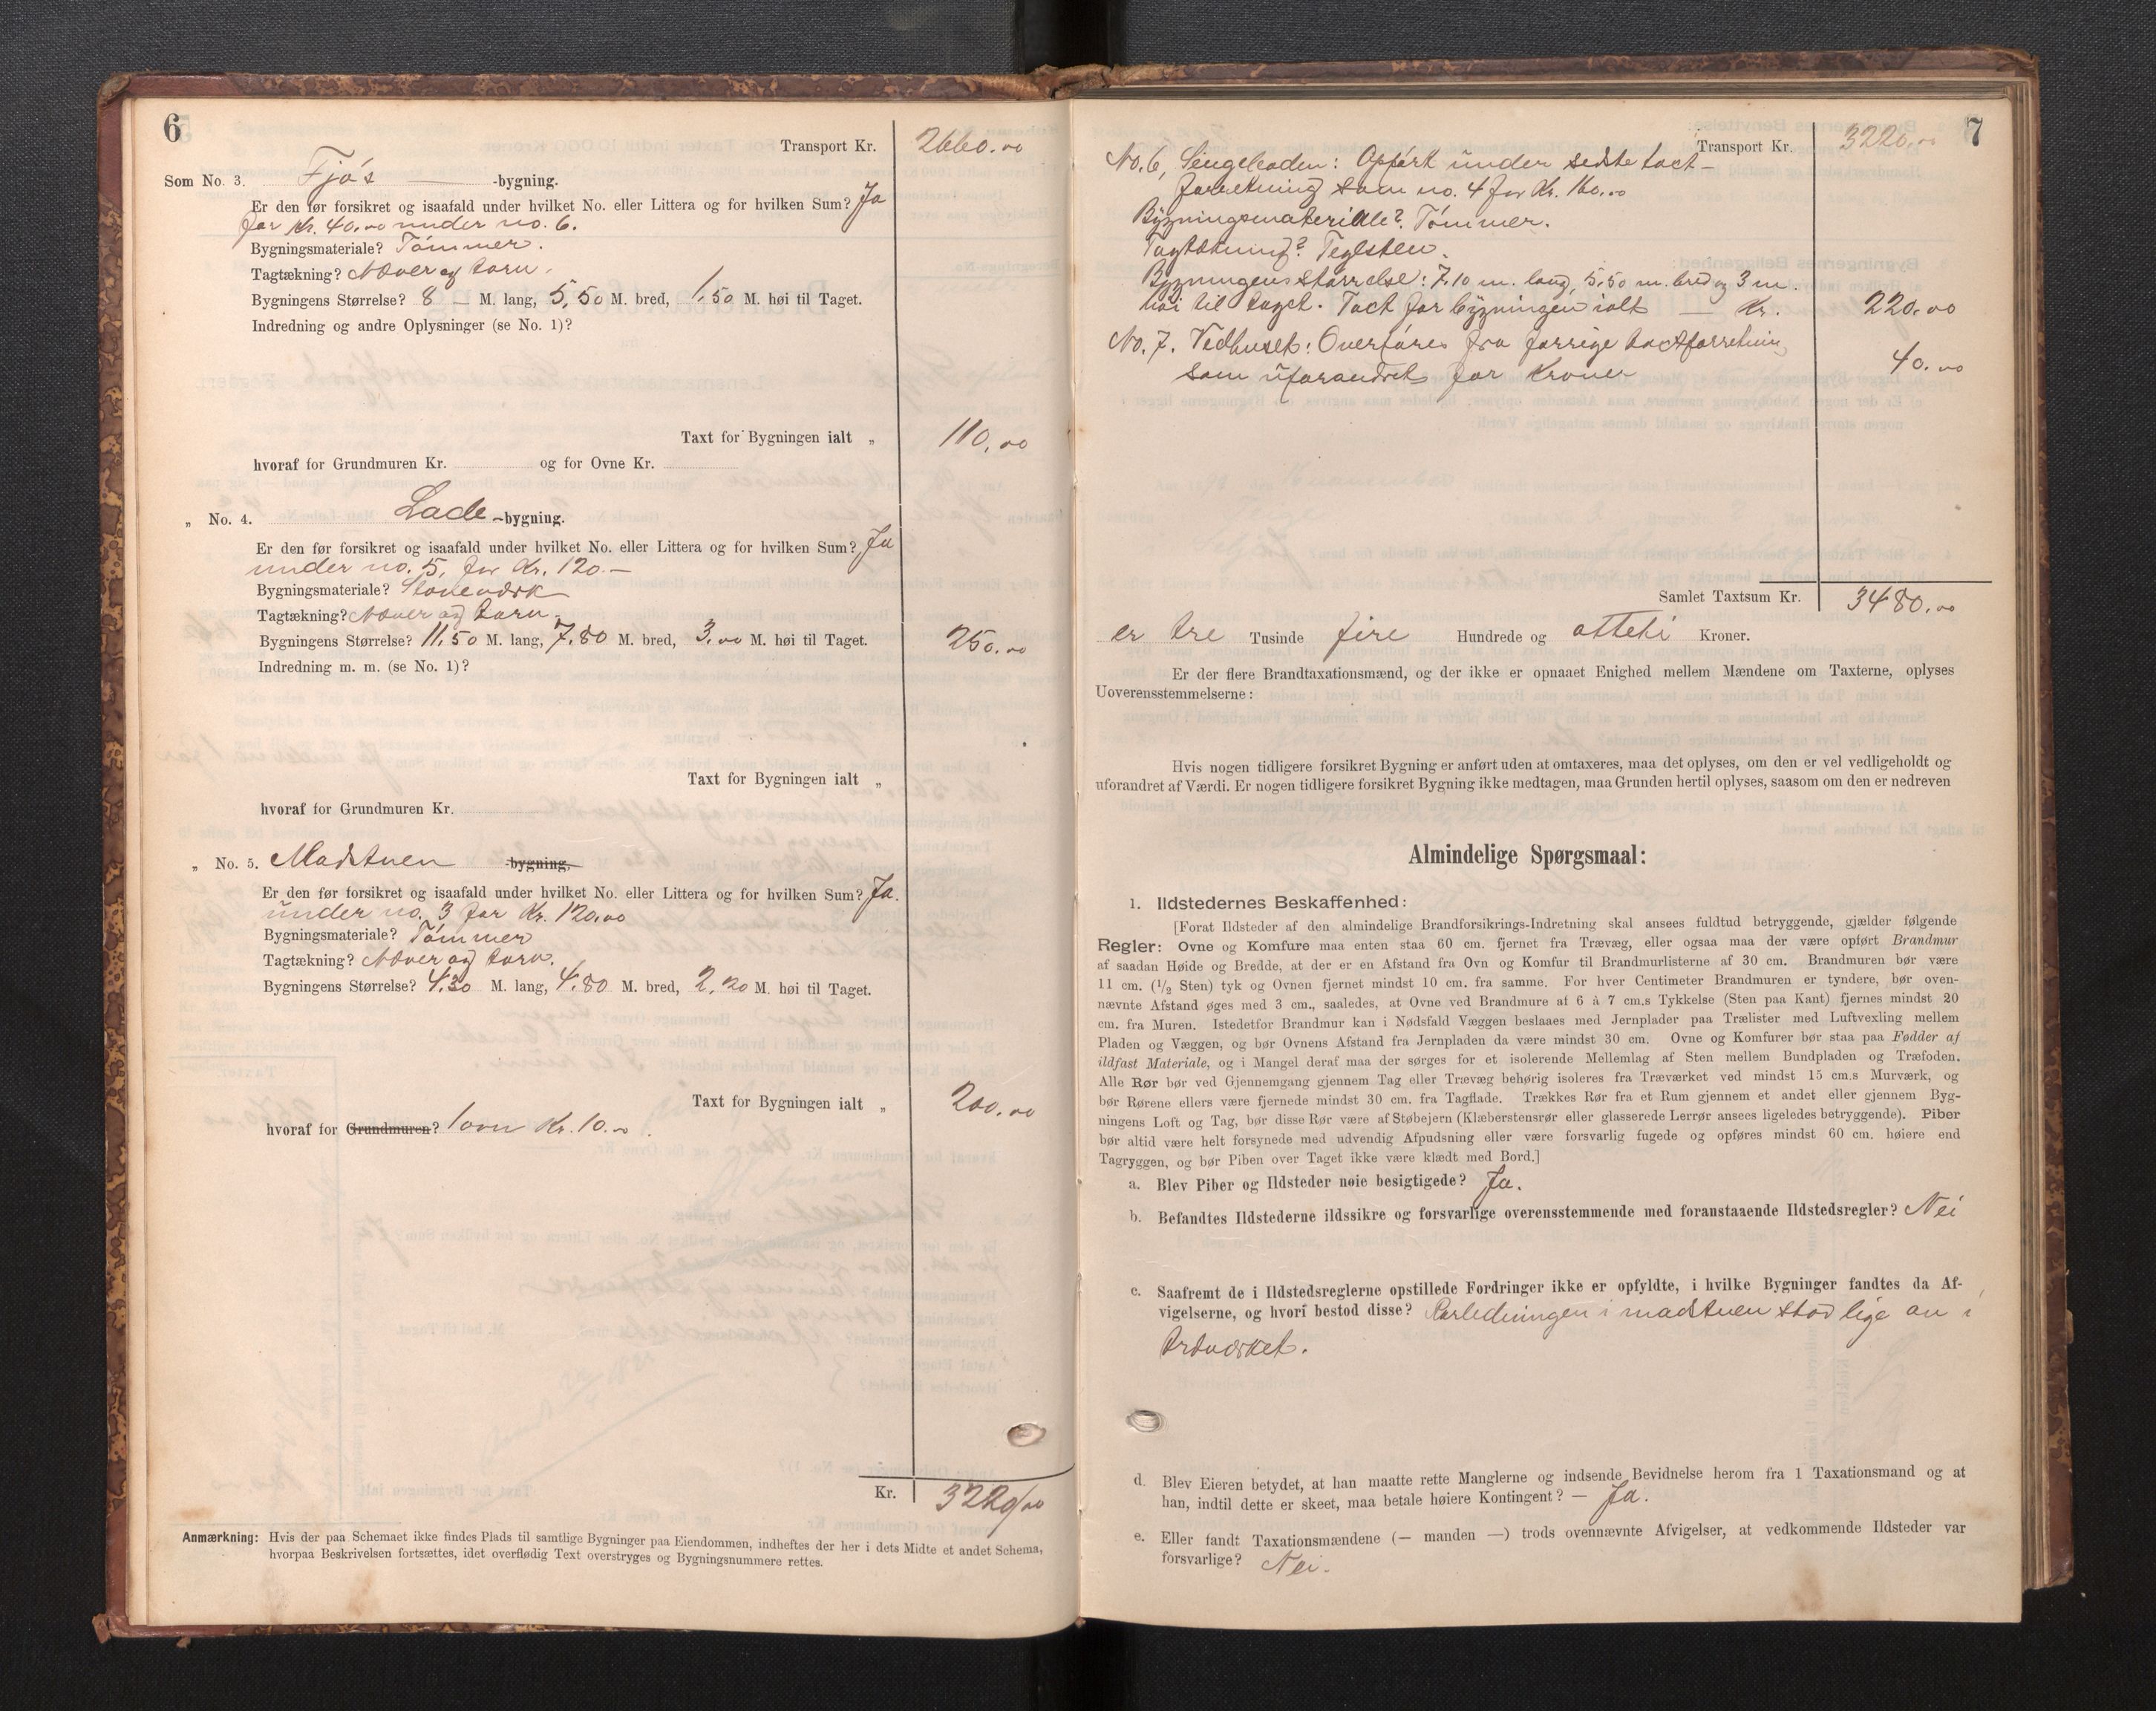 6
Transport Kr. 2660.00
Som No. 3. Fjøs -bygning.
Er den før forsikret og isaafald under hvilket No. eller Littera og for hvilken Sum? Ja
for Kr. 40.00 under no. 6.
Bygningsmateriale? Tømmer.
Tagtækning? Næver og torv.
Bygningens Størrelse? 8 — M. lang, 5,50 M. bred, 1,50 M. høi til Taget.
Indredning og andre Oplysninger (se No. 1)?
Taxt for Bygningen ialt „ 110.00
hvoraf for Grundmuren Kr. og for Ovne Kr.
„ No. 4. Lade -bygning.
Er den før forsikret og isaafald under hvilket No. eller Littera og for hvilken Sum? Ja
under no. 5, for Kr. 120.—
Bygningsmateriale? Staveværk
Tagtækning? Næver og torv.
Bygningens Størrelse? 11.50 M. lang, 7.80 M. bred, 3.00 M. høi til Taget. 250.00
Indredning m. m. (se No. 1)?
Taxt for Bygningen ialt „
hvoraf for Grundmuren Kr.
„ No. 5. Madstuen -bygning.
Er den før forsikret og isaafald under hvilket No. eller Littera og for hvilken Sum? Ja.
under no. 3 for Kr. 120.00
Bygningsmateriale? Tømmer
Tagtækning? Næver og torv.
Bygningens Størrelse? 4.30 M. lang, 4.80 M. bred, 2.20 M. høi til Taget.
Taxt for Bygningen ialt „ 200.00
hvoraf for Grundmuren? 1 ovn Kr. 10.00.
Kr. 3220.00
Anmærkning: Hvis der paa Schemaet ikke findes Plads til samtlige Bygninger paa Eiendommen, indheftes der her i dets Midte et andet Schema,
hvorpaa Beskrivelsen fortsættes, idet overflødig Text overstryges og Bygningsnummere rettes.
7
Transport Kr. 3220.00
No. 6, Sengeloden: Opført under sidste taxt-
forretning som no. 4 for Kr. 160.00
Bygningsmateriale? Tømmer.
Tagtækning? Teglsten.
Bygningens størrelse: 7,10 m. lang, 5,50 m. bred og 3 m.
høi til taget. Taxt for bygningen ialt — Kr. 220.00
No. 7. Vedhuset: Overføres fra forrige taxtforretning
som uforandret for Kroner 40.00
Samlet Taxtsum Kr. 3480.00
er tre Tusinde fire Hundrede og otteti Kroner.
Er der flere Brandtaxationsmænd, og der ikke er opnaaet Enighed mellem Mændene om Taxterne, oplyses
Uoverensstemmelserne:
Hvis nogen tidligere forsikret Bygning er anført uden at omtaxeres, maa det oplyses, om den er vel vedligeholdt og
uforandret af Værdi. Er nogen tidligere forsikret Bygning ikke medtagen, maa Grunden hertil oplyses, saasom om den er nedreven
Almindelige Spørgsmaal:
1. Ildstedernes Beskaffenhed:
[Forat Ildsteder af den almindelige Brandforsikrings-Indretning skal ansees fuldtud betryggende, gjælder følgende
Regler: Ovne og Komfure maa enten staa 60 cm. fjernet fra Trævæg, eller ogsaa maa der være opført Brandmur
af saadan Høide og Bredde, at der er en Afstand fra Ovn og Komfur til Brandmurlisterne af 30 cm. Brandmuren bør være
11 cm. (1/2 Sten) tyk og Ovnen fjernet mindst 10 cm. fra samme. For hver Centimeter Brandmuren er tyndere, bør oven-
nævnte Afstand øges med 3 cm., saaledes, at Ovne ved Brandmure af 6 à 7 cm.s Tykkelse (Sten paa Kant) fjernes mindst 20
cm. fra Muren. Istedetfor Brandmur kan i Nødsfald Væggen beslaaes med Jernplader paa Trælister med Luftvexling mellem
Pladen og Væggen, og bør Ovnens Afstand fra Jernpladen da være mindst 30 cm. Ovne og Komfurer bør staa paa Fødder af
ildfast Materiale, og i Mangel deraf maa der sørges for et isolerende Mellemlag af Sten mellem Bundpladen og Træfoden.
Alle Rør bør ved Gjennemgang gjennem Tag eller Trævæg behørig isoleres fra Træværket ved mindst 15 cm.s Murværk, og
bør Rørene ellers være fjernede mindst 30 cm. fra Tagflade. Trækkes Rør fra et Rum gjennem et andet eller gjennem Byg-
ningens Loft og Tag, bør disse Rør være af Støbejern (Klæberstensrør eller glasserede Lerrør ansees ligeledes betryggende). Piber
bør altid være helt forsynede med udvendig Afpudsning eller være forsvarlig fugede og opføres mindst 60 cm. høiere end
Tagryggen, og bør Piben over Taget ikke være klædt med Bord.]
a. Blev Piber og Ildsteder nøie besigtigede? Ja.
b. Befandtes Ildstederne ildssikre og forsvarlige overensstemmende med foranstaaende Ildstedsregler? Nei
c. Saafremt de i Ildstedsreglerne opstillede Fordringer ikke er opfyldte, i hvilke Bygninger fandtes da Af-
vigelserne, og hvori bestod disse? Rørledningen i madstuen stod lige an i
træværket.
d. Blev Eieren betydet, at han maatte rette Manglerne og indsende Bevidnelse herom fra 1 Taxationsmand og at
han, indtil dette er skeet, maa betale høiere Kontingent? — Ja.
e. Eller fandt Taxationsmændene (— manden —) trods ovennævnte Afvigelser, at vedkommende Ildsteder var
forsvarlige? Nei.